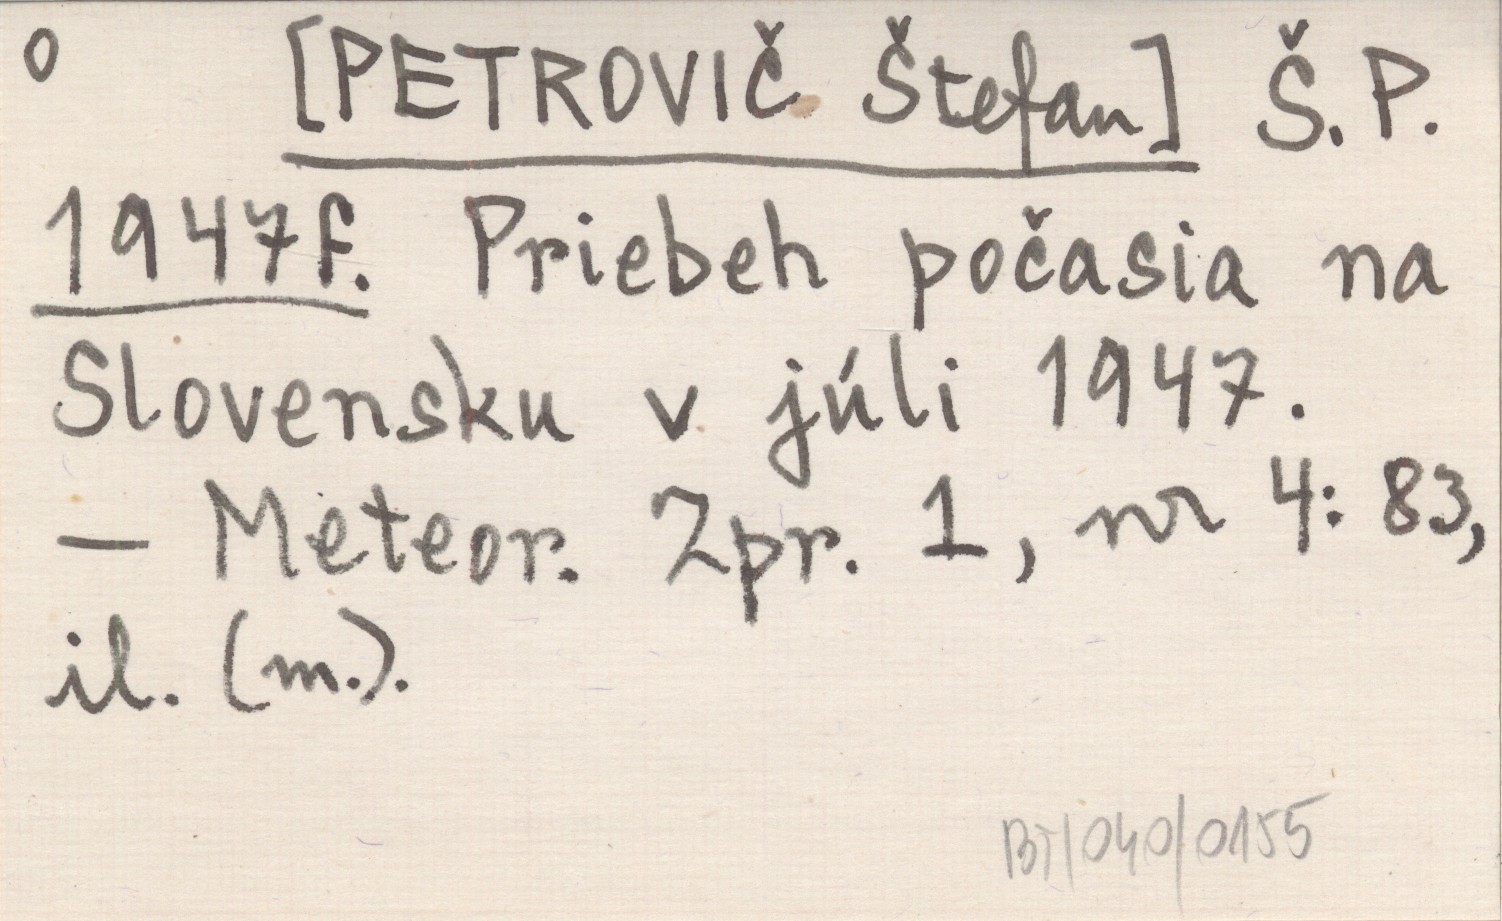 o [PETROVIČ Štefan] Š. P.
1947f. Priebeh počasia na
Slovensku v júli 1947.
— Meteor. Zpr. 1, nr 4: 83,
il. (m.).
BT/040/0155